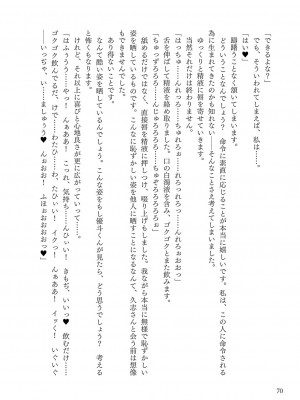 「できるよな？」
でも、そういわれてしまえば、私は……。
「はい♥」
躊躇うことなく頷いてしまいます。
どういうことなんでしょう？　命令に素直に応じることが本当に嬉しいです。私は、この人に命令される
為に生まれてきたのかも知れない――そんなことさえ考えてしまうほどに……。
ゆっくりと精液に唇を寄せていきます。
当然それだけでは終わりません。
「はっちゅ……んれろっ……ちゅれろぉ……れろっれろっ……んれろぉおおっ」
舌を伸ばして精液を舐め取りました。口の白濁液を含み、ゴクゴクとまた飲みます。
「じゅるるる……ちゅずるるるぅ……ちゅぞろろろろぉ」
舐めるだけではなく、直接唇を精液に押しつけ、啜り上げもしました。我ながら本当に無様で恥ずかしい
姿を晒しているものです。こんなに恥ずかしい姿を他人に晒すことになるなんて、久志さんと会う前は想像
もできませんでした。
あり得ないことです。
なんて酷い姿を晒しているんでしょう。こんな姿をもし優斗くんが見たら、どう思うでしょう？　考える
と怖くもなります。
けれど、それ以上に喜びと心地良さが更に広がっていって……。
「はふぅうう……やっ！　んぁああ！　これ、気持ち……んひぃい！　きもぢ、いいっ♥　飲むだけ……
ゴクゴク飲んでるだけ、けで……わたひ……わ、たひぃい！　イクっ！　んぁああ！　イッく！　いぐいぐ
……いっちゃ、い……ましゅうう♥　んぉおお！　ふほぉおおおおっ♥」
70